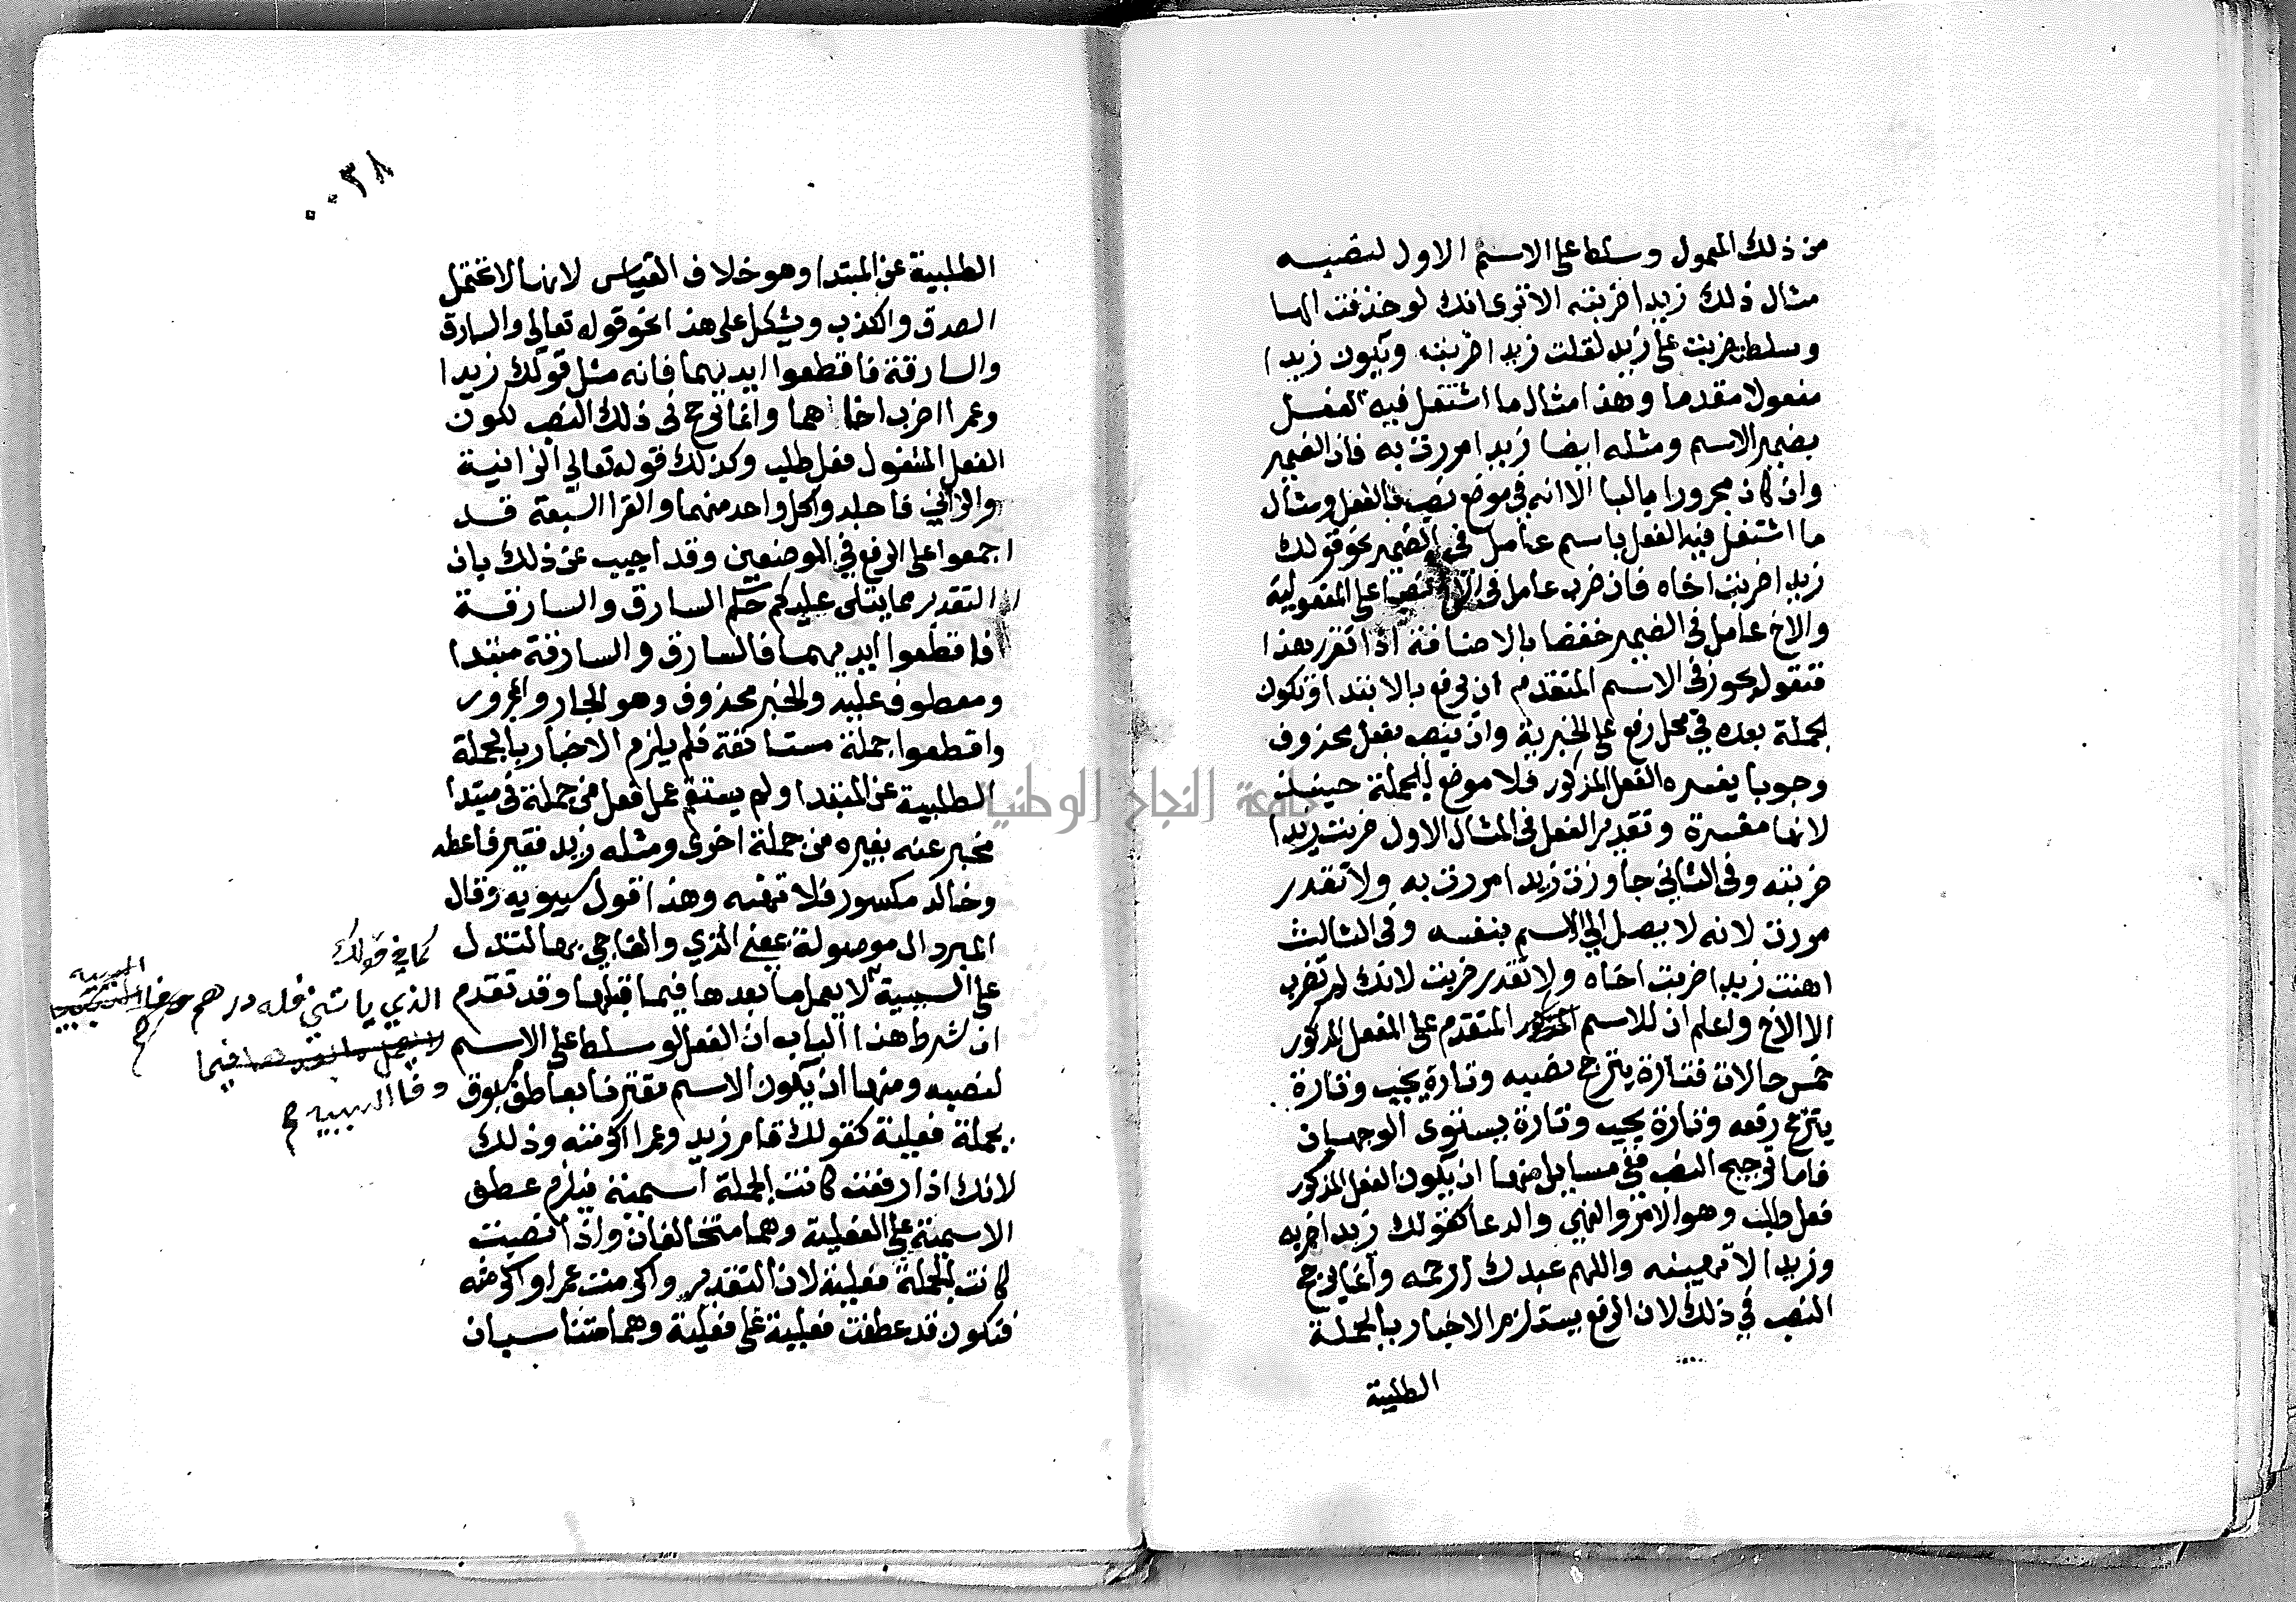 من ذلك المعمول وسلط على الاسم الاول لنصبه
مثال ذلك زيدا ضربته الا ترى انك لو حذفت الها
وسلطت ضربت على زيد لقلت زيدا ضربته ويكون زيدا
مفعولا مقدما وهذا مثال ما اشتغل فيه الفعل
بضمير الاسم ومثله ايضا زيدا مررت به فان الضمير
وان كان مجرورا بالبا الا انه في موضع نصب بالفعل ومثال
ما اشتغل فيه الفعل باسم عامل في الضمير نحو قولك
زيدا ضربت اخاه فان ضرب عامل في الاخ نصبا على المفعولية
والاخ عامل في الضمير خفضا بالاضافة اذا تقرر هذا
فتقول يجوز في الاسم المتقدم ان يرفع بالابتدا وتكون
الجملة بعده في محل رفع على الخبرية وان ينصب بفعل محذوف
وجوبا يفسره الفعل المذكور فلا موضع للجملة حينئذ
لانها مفسرة وتقدير الفعل في المثال الاول ضربت زيدا
ضربته وفي الثاني جاوزت زيدا مررت به ولا تقدر
مررت لانه لا يصل الى الاسم بنفسه وفي الثالث
اهنت زيدا ضربت اخاه ولا تقدر ضربت لانك لم تضرب
الا الاخ واعلم ان للاسم المتقدم على الفعل المذكور
خمس حالات فتارة يترجح نصبه وتارة يجب وتارة
يترجح رفعه وتارة يجب وتارة يستوى الوجهان
فاما ترجيح النصب ففي مسايل منها ان يكون الفعل المذكور
فعل طلب وهو الامر والنهي والدعا كقولك زيدا اضربه
وزيدا لا تهينه واللهم عبدك ارحمه وانما يترجح
النصب في ذلك لان الرفع يستلزم الاخبار بالجملة
الطلبية
٠٠٣٨
الطلبية عن المبتدا وهو خلاف القياس لانها لا تحتمل
الصدق والكذب ويشكل على هذا نحو قوله تعالي والسارق
والسارقة فاقطعوا ايديهما فانه مثل قولك زيدا
وعمرا اضرب اخاهما وانما ترجح في ذلك النصب لكون
الفعل المشغول فعل طلب وكذلك قوله تعالي الزانية
والزاني فاجلدوا كل واحد منهما والقرا السبعة قد
اجمعوا على الرفع في الموضعين وقد اجيب عن ذلك بان
التقدير مما يتلى عليكم حكم السارق والسارقة
فاقطعوا ايديهما فالسارق والسارقة مبتدا
ومعطوف عليه والخبر محذوف وهو الجار والمجرور
واقطعوا جملة مستانفة فلم يلزم الاخبار بالجملة
الطلبية عن المبتدا ولم يستقم عمل فعل من جملة في مبتدا
مخبر عنه بغيره من جملة اخرى ومثله زيد فقير فاعطه
وخالد مكسور فلا تهنه وهذا قول سيبويه وقال
المبرد ال موصولة بمعني الذي والفا جي بها لتدل
على السببية لا يعمل ما بعدها فيما قبلها وقد تقدم
ان شرط هذا الباب ان الفعل لو سلط على الاسم
لنصبه ومنها ان يكون الاسم مقترنا بعاطف مسبوق
بجملة فعلية كقولك قام زيد وعمرا اكرمته وذلك
لانك اذا رفعت كانت الجملة اسمية فيلزم عطف
الاسمية على الفعلية وهما متخالفان واذا نصبت
كانت الجملة فعلية لان التقدير واكرمت عمرا واكرمته
فتكون قد عطفت فعلية على فعلية وهما متناسبان
كما في قولك
الذي ياتني فله درهم وفا السببية
لا يعمل ما بعدها فيما
وفا السببية
جامعة النجاح الوطنية